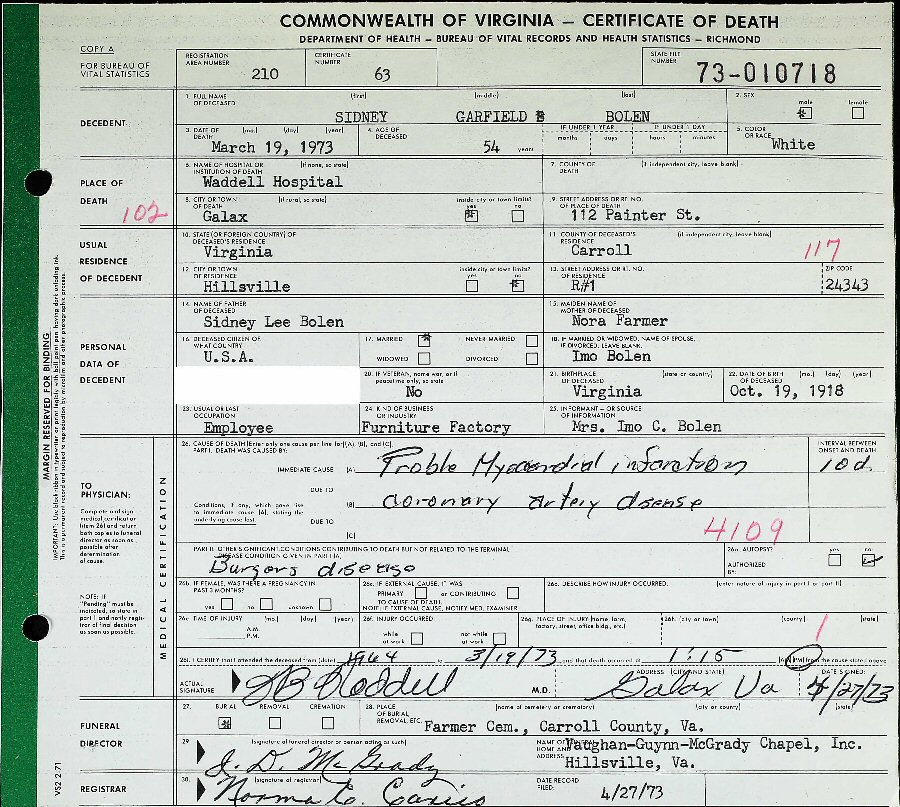 COMMONWEALTH OF VIRGINIA — CERTIFICATE OF DEATH
DEPARTMENT OF HEALTH — BUREAU OF VITAL RECORDS AND HEALTH STATISTICS — RICHMOND
COPY A
FOR BUREAU OF VITAL STATISTICS
REGISTRATION AREA NUMBER 210
CERTIFICATE NUMBER 63
STATE FILE NUMBER 73-010718
DECEDENT
1. FULL NAME OF DECEASED (first) (middle) (last)
SIDNEY GARFIELD BOLEN
2. SEX male female
3. DATE OF DEATH (mo.) (day) (year)
March 19, 1973
4. AGE OF DECEASED 54 years
IF UNDER 1 YEAR months days
IF UNDER 1 DAY hours minutes
5. COLOR OR RACE White
PLACE OF DEATH
102
6. NAME OF HOSPITAL OR INSTITUTION OF DEATH (if none, so state)
Waddell Hospital
7. COUNTY OF DEATH (if independent city, leave blank)
8. CITY OR TOWN OF DEATH (if rural, so state)
Galax
inside city or town limits? yes no
9. STREET ADDRESS OR RT. NO. OF PLACE OF DEATH
112 Painter St.
USUAL RESIDENCE OF DECEDENT
10. STATE (OR FOREIGN COUNTRY) OF DECEASED'S RESIDENCE
Virginia
11. COUNTY OF DECEASED'S RESIDENCE (if independent city, leave blank)
Carroll
117
12. CITY OR TOWN OF RESIDENCE
Hillsville
inside city or town limits? yes no
13. STREET ADDRESS OR RT. NO. OF RESIDENCE
R#1
ZIP CODE
24343
PERSONAL DATA OF DECEDENT
14. NAME OF FATHER OF DECEASED
Sidney Lee Bolen
15. MAIDEN NAME OF MOTHER OF DECEASED
Nora Farmer
16. DECEASED CITIZEN OF WHAT COUNTRY
U.S.A.
17. MARRIED NEVER MARRIED
WIDOWED DIVORCED
18. IF MARRIED OR WIDOWED, NAME OF SPOUSE. IF DIVORCED, LEAVE BLANK.
Imo Bolen
20. IF VETERAN, name war, or if peacetime only, so state
No
21. BIRTHPLACE OF DECEASED (state or country)
Virginia
22. DATE OF BIRTH OF DECEASED (mo.) (day) (year)
Oct. 19, 1918
23. USUAL OR LAST OCCUPATION
Employee
24. KIND OF BUSINESS OR INDUSTRY
Furniture Factory
25. INFORMANT – OR SOURCE OF INFORMATION
Mrs. Imo C. Bolen
MARGIN RESERVED FOR BINDING
MEDICAL CERTIFICATION
TO PHYSICIAN:
Complete and sign medical certification (item 26) and return both copies to funeral director as soon as possible after determination of cause.
NOTE: If "Pending" must be indicated, so state in part I and notify registrar of final decision as soon as possible.
26. CAUSE OF DEATH (Enter only one cause per line for (A), (B), and (C).
PART I. DEATH WAS CAUSED BY:
INTERVAL BETWEEN ONSET AND DEATH
IMMEDIATE CAUSE (A) Proble Myocardial infarction
10 d.
DUE TO
Conditions, if any, which gave rise to immediate cause (A), stating the underlying cause last.
(B) coronary artery disease
DUE TO
(C)
4109
PART II. OTHER SIGNIFICANT CONDITIONS CONTRIBUTING TO DEATH BUT NOT RELATED TO THE TERMINAL DISEASE CONDITION GIVEN IN PART I (A)
Burgers disease
26a. AUTOPSY? yes no
AUTHORIZED BY:
26b. IF FEMALE, WAS THERE A PREGNANCY IN PAST 3 MONTHS?
yes no unknown
26c. IF EXTERNAL CAUSE, IT WAS
PRIMARY or CONTRIBUTING
TO CAUSE OF DEATH.
NOTE: IF EXTERNAL CAUSE, NOTIFY MED. EXAMINER
26d. DESCRIBE HOW INJURY OCCURRED. (enter nature of injury in part I or part II)
26e. TIME OF INJURY (mo.) (day) (year)
A.M.
P.M.
26f. INJURY OCCURRED
while at work not while at work
26g. PLACE OF INJURY (home, farm, factory, street, office bldg., etc.)
26h. (city or town) (county) (state)
1
26i. I CERTIFY that I attended the deceased from (date) 1964 to 3/19/73 and that death occurred at 1:15 from the cause stated above
ACTUAL SIGNATURE
Waddell M.D.
ADDRESS (CITY AND STATE)
Galax Va
DATE SIGNED:
4/27/73
FUNERAL DIRECTOR
27. BURIAL REMOVAL CREMATION
28. PLACE OF BURIAL, REMOVAL, ETC. (name of cemetery or crematory) (city or county) (state)
Farmer Cem., Carroll County, Va.
29. (signature of funeral director or person acting as such)
J. D. McGrady
NAME OF FUNERAL HOME AND ADDRESS
Vaughan-Guynn-McGrady Chapel, Inc.
Hillsville, Va.
REGISTRAR
30. (signature of registrar)
Norma C.
DATE RECORD FILED: 4/27/73
VS2 2-71